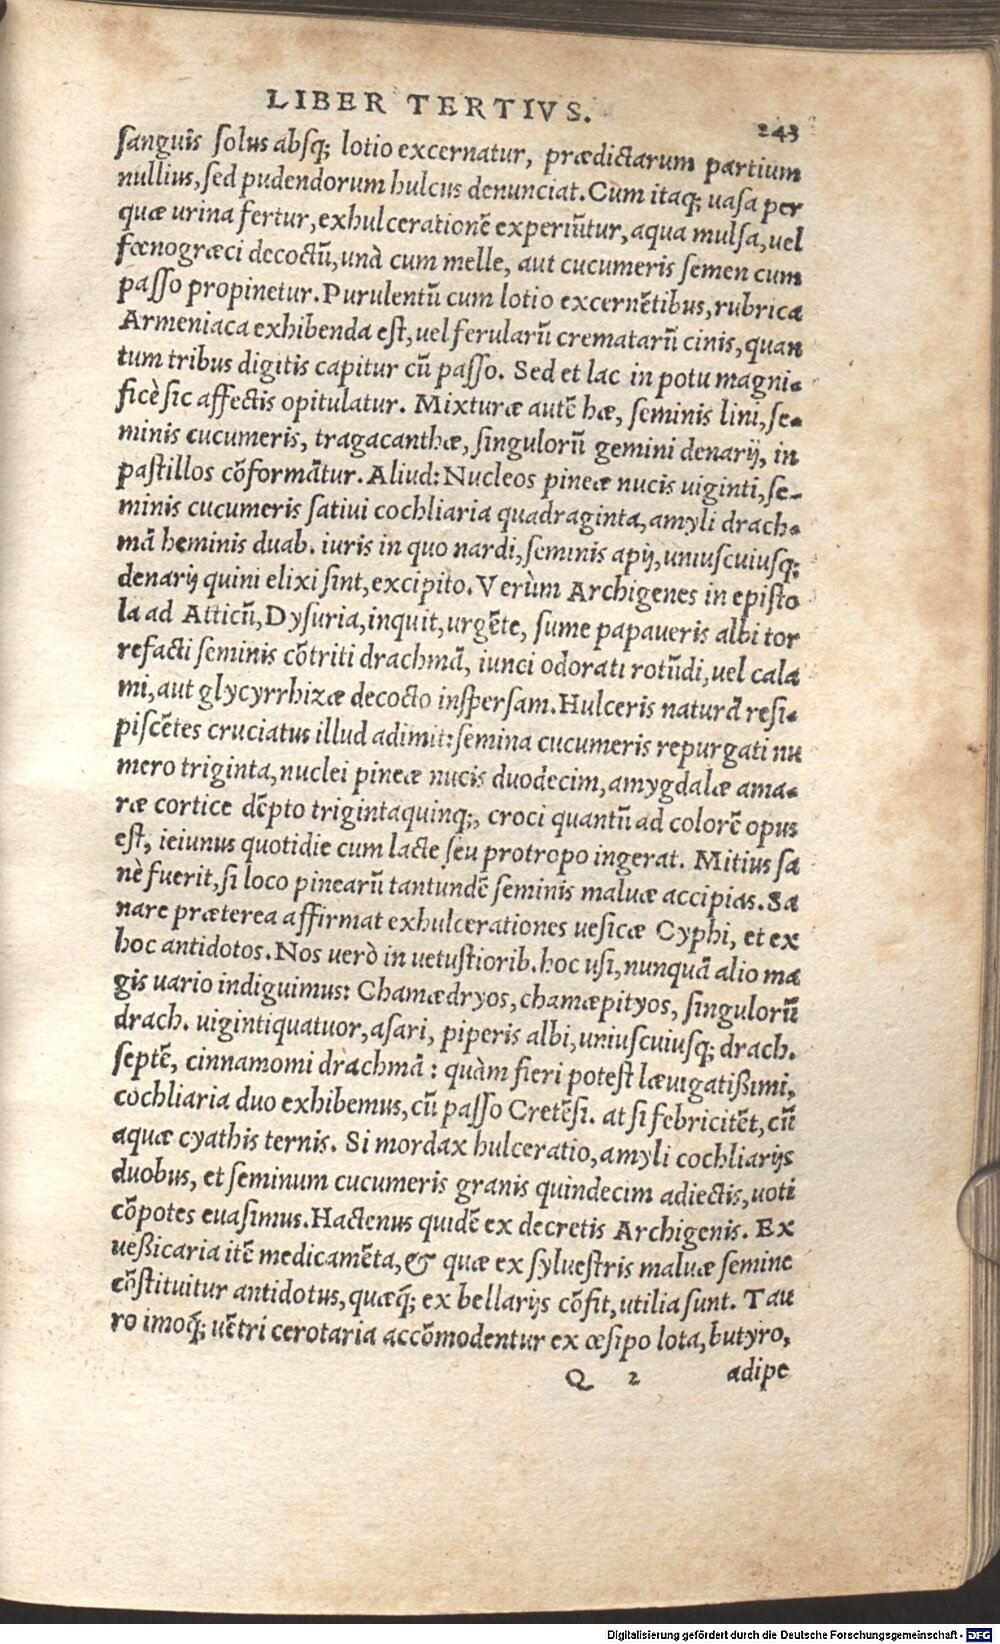 LIBER TERTIVS.
243
sanguis solus absq; lotio excernatur, prædictarum partium
nullius, sed pudendorum hulcus denunciat. Cum itaq; uasa per
quæ urina fertur, exhulcerationẽ experiũtur, aqua mulsa, uel
fœnogræci decoctũ, unà cum melle, aut cucumeris semen cum
passo propinetur. Purulentũ cum lotio excernẽtibus, rubrica
Armeniaca exhibenda est, uel ferularũ crematarũ cinis, quan
tum tribus digitis capitur cũ passo. Sed et lac in potu magni-
ficè sic affectis opitulatur. Mixturæ autẽ hæ, seminis lini, se-
minis cucumeris, tragacanthæ, singulorũ gemini denarij, in
pastillos cõformãtur. Aliud: Nucleos pineæ nucis uiginti, se-
minis cucumeris satiui cochliaria quadraginta, amyli drach-
mã heminis duab. iuris in quo nardi, seminis apij, uniuscuiusq;
denarij quini elixi sint, excipito. Verùm Archigenes in episto
la ad Atticũ, Dysuria, inquit, urgẽte, sume papaueris albi tor
refacti seminis cõtriti drachmã, iunci odorati rotũdi, uel cala
mi, aut glycyrrhizæ decocto inspersam. Hulceris naturã resi-
piscẽtes cruciatus illud adimit: semina cucumeris repurgati nu
mero triginta, nuclei pineæ nucis duodecim, amygdalæ ama-
ræ cortice dẽpto trigintaquinq;, croci quantũ ad colorẽ opus
est, ieiunus quotidie cum lacte seu protropo ingerat. Mitius sa
nè fuerit, si loco pinearũ tantundẽ seminis maluæ accipias. Sa
nare præterea affirmat exhulcerationes uesicæ Cyphi, et ex
hoc antidotos. Nos uerò in uetustiorib. hoc usi, nunquã alio ma
gis uario indiguimus: Chamædryos, chamæpityos, singulorũ
drach. uigintiquatuor, asari, piperis albi, uniuscuiusq; drach.
septẽ, cinnamomi drachmã: quàm fieri potest læuigatißimi,
cochliaria duo exhibemus, cũ passo Cretẽsi. at si febricitẽt, cũ
aquæ cyathis ternis. Si mordax hulceratio, amyli cochliarijs
duobus, et seminum cucumeris granis quindecim adiectis, uoti
cõpotes euasimus. Hactenus quidẽ ex decretis Archigenis. Ex
ueßicaria itẽ medicamẽta, & quæ ex syluestris maluæ semine
cõstituitur antidotus, quæq́; ex bellarijs cõfit, utilia sunt. Tau
ro imoq́; uẽtri cerotaria accõmodentur ex œsipo lota, butyro,
Q 2
adipe
Digitalisierung gefördert durch die Deutsche Forschungsgemeinschaft - DFG